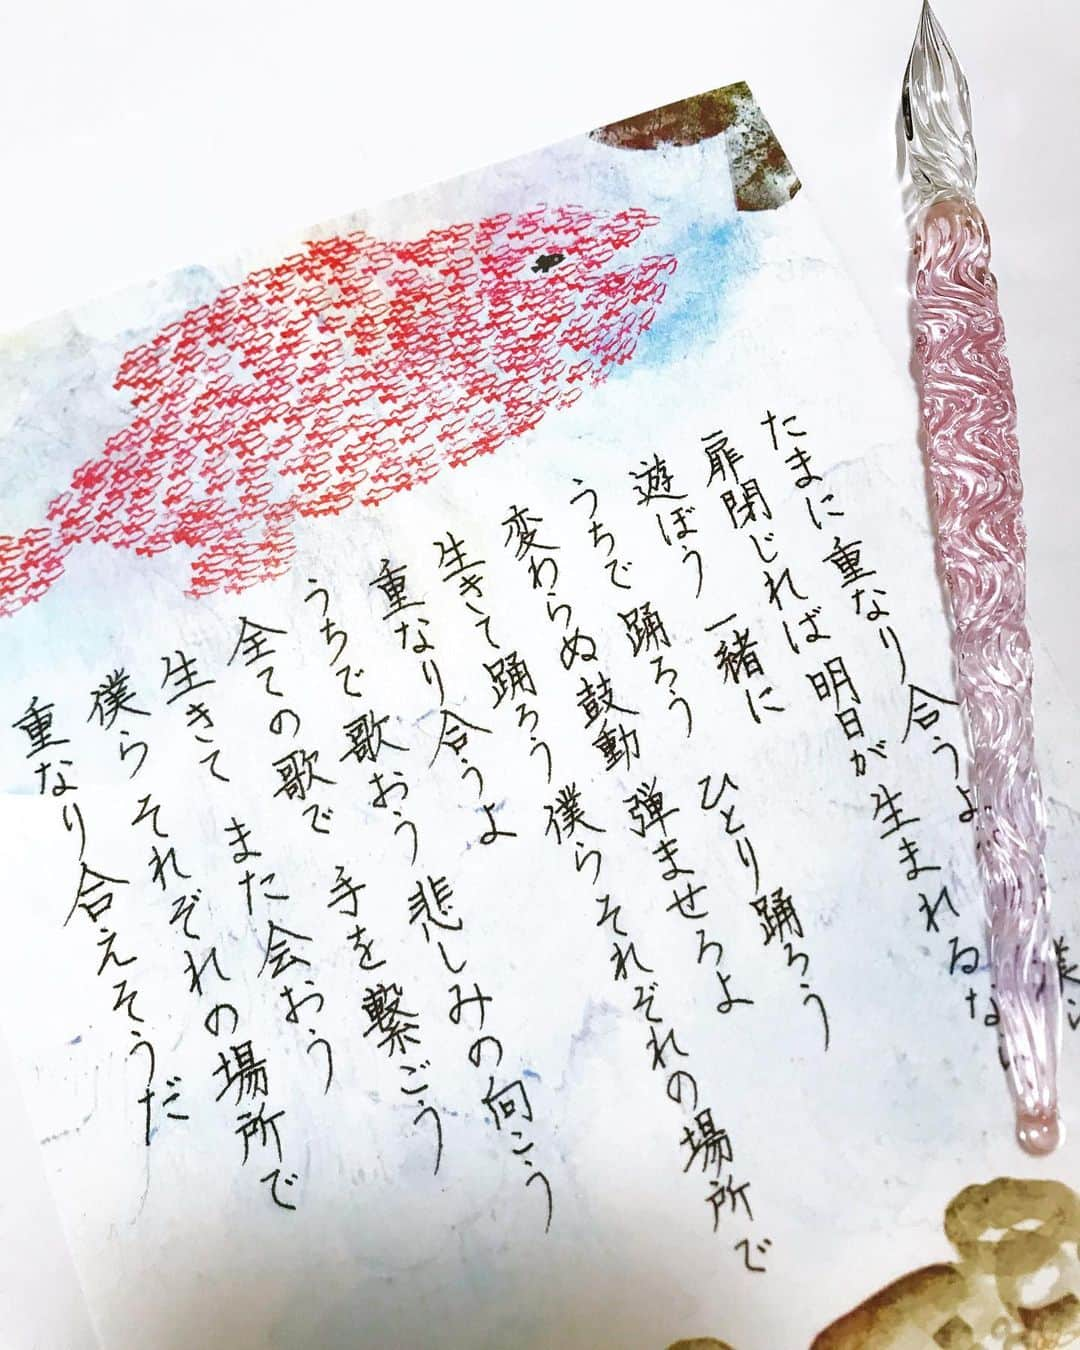 たまに重なり合うよ
扉閉じれば 明日が生まれるな
遊ぼう 一緒に
うちで踊ろう ひとり踊ろう
変わらぬ鼓動 弾ませろよ
生きて踊ろう 僕らそれぞれの場所で
重なり合うよ
うちで歌おう 悲しみの向こう
全ての歌で 手を繋ごう
生きて また会おう
僕ら それぞれの場所で
重なり合えそうだ